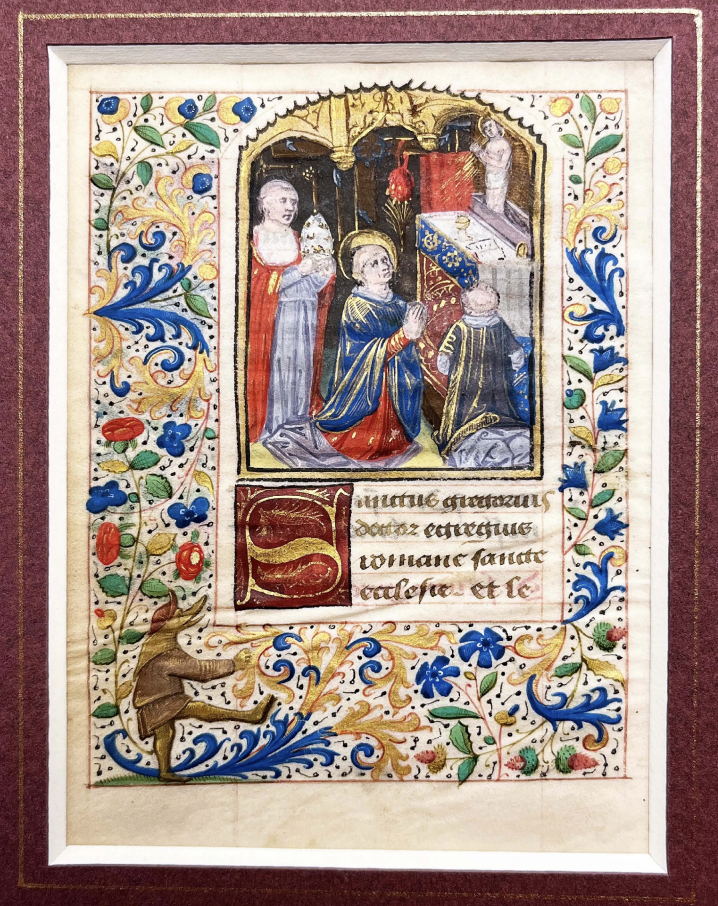 Sanctus gregorius
doctor egregius
romane sancte
ecclesie et se